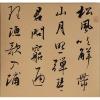 松風吹解帶
山月照彈琴
君問窮通
理漁歌入浦